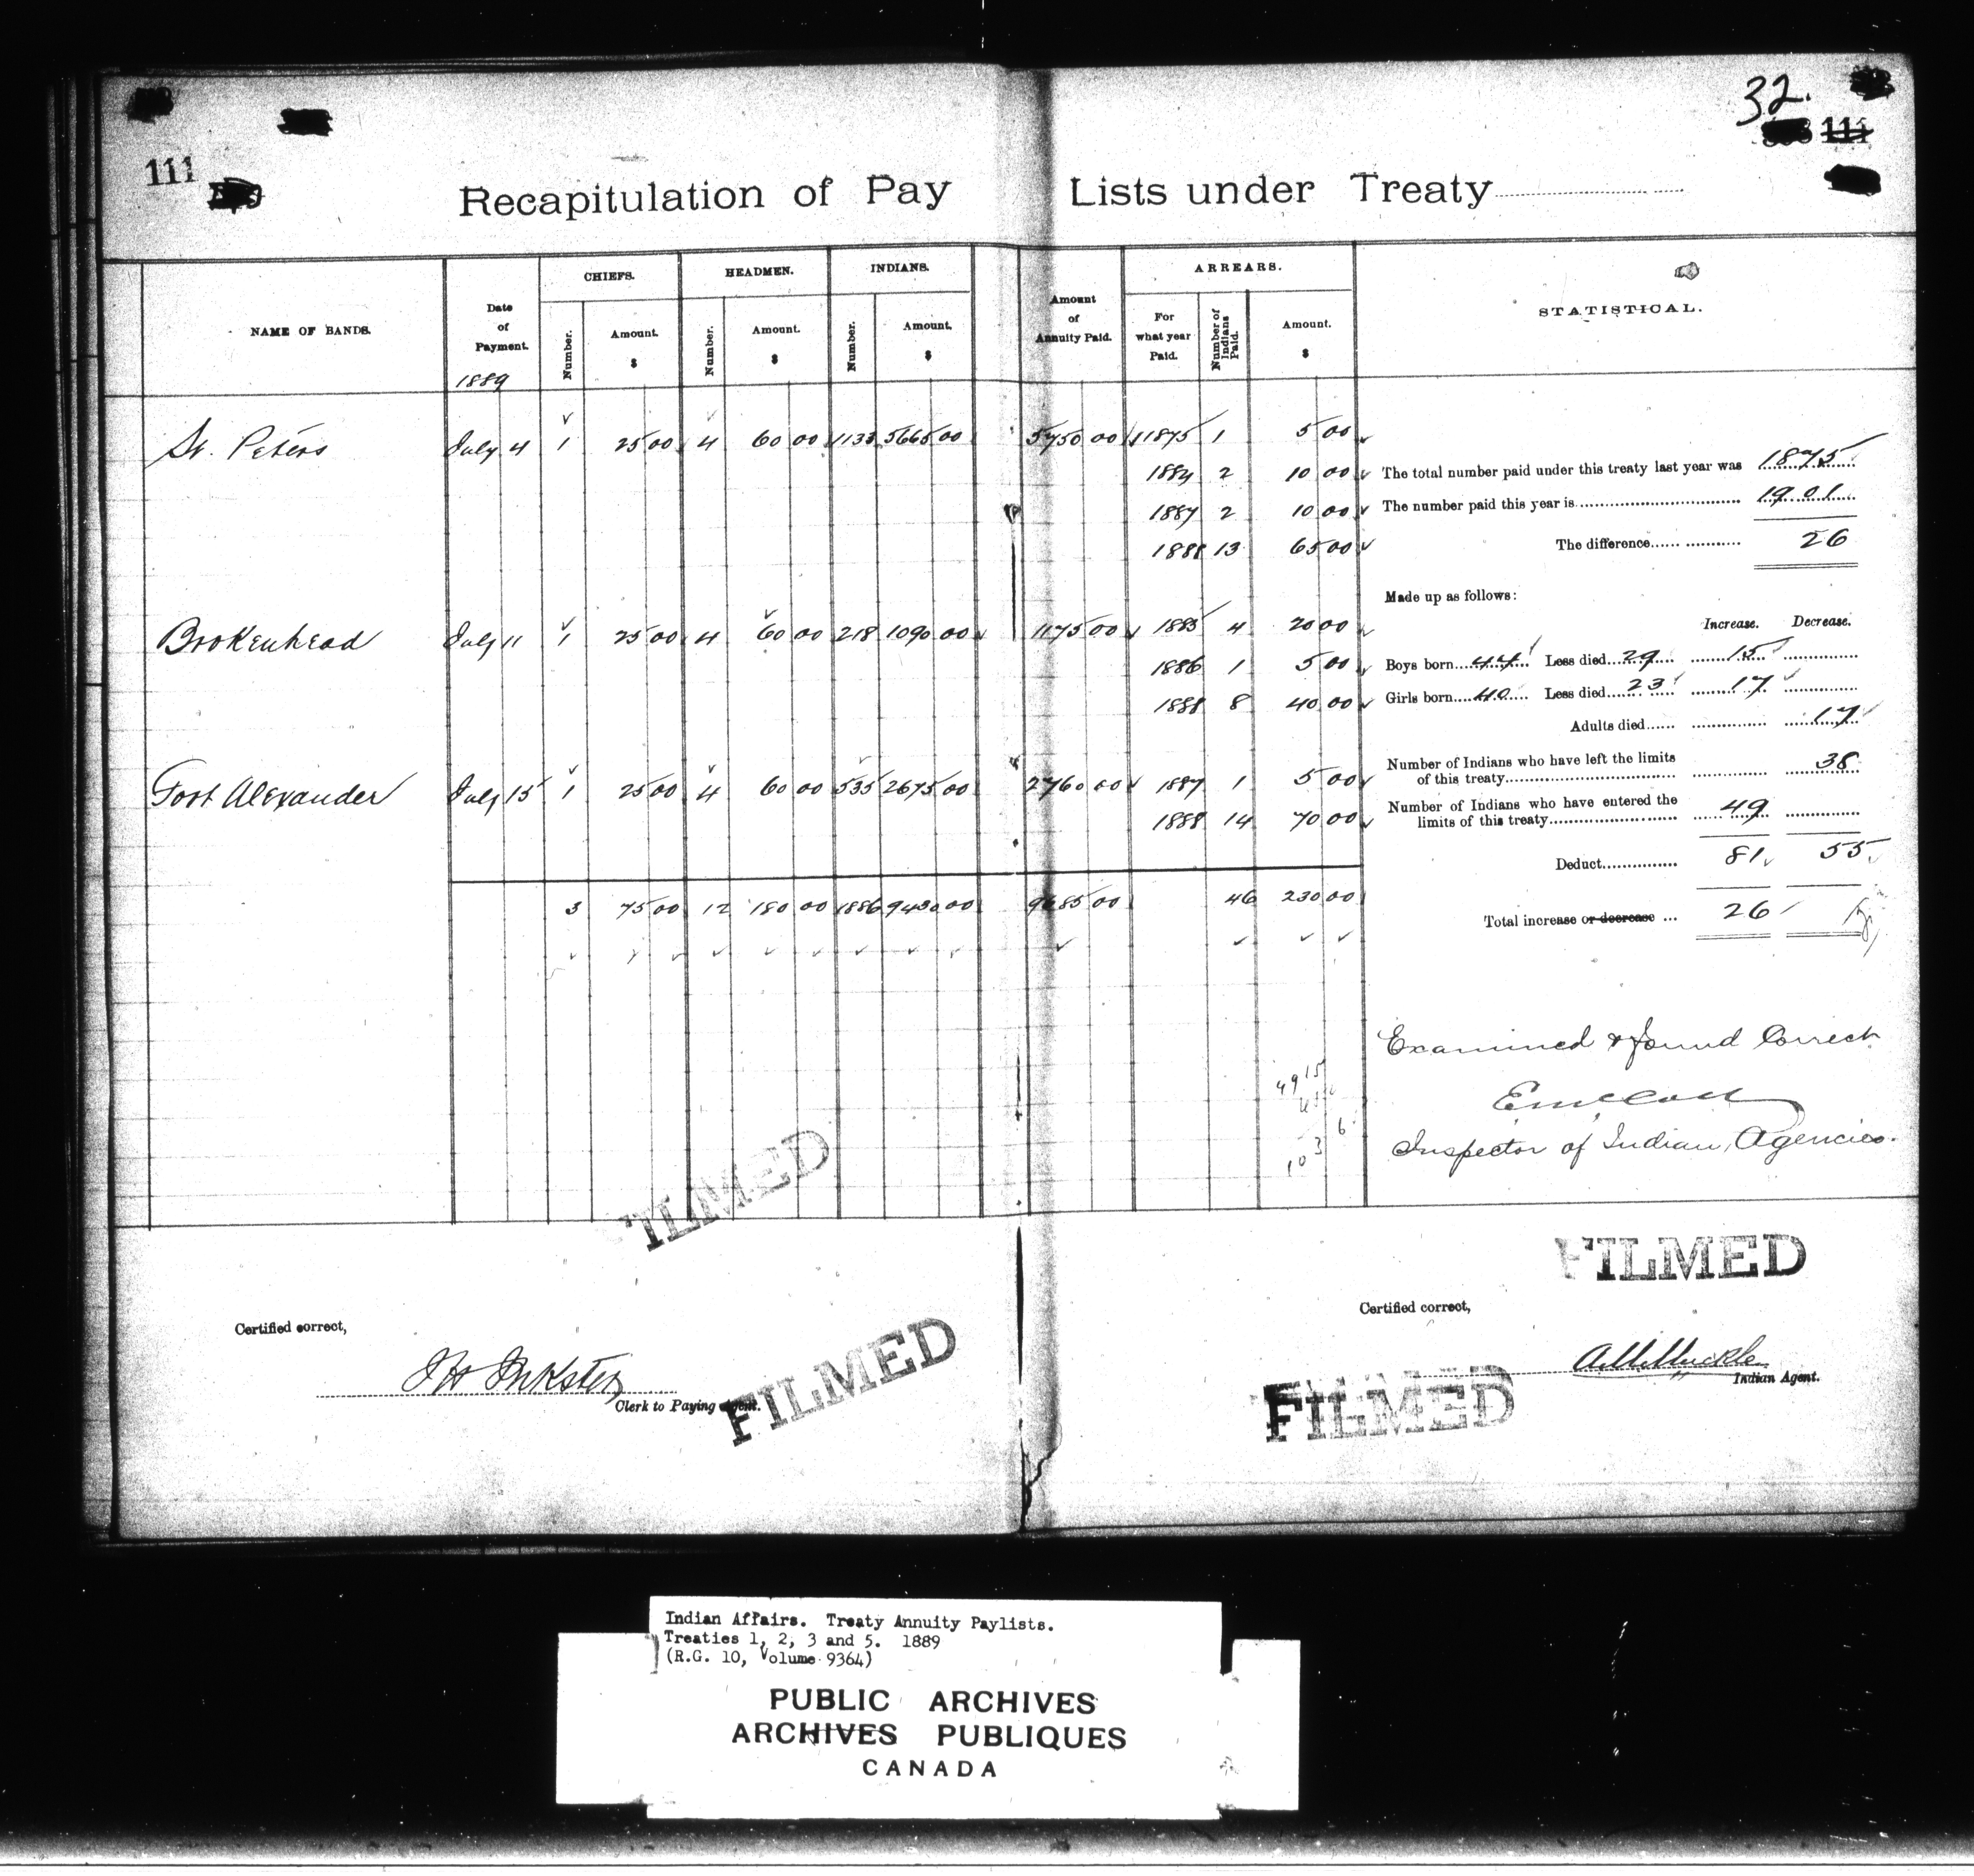 32.
111
111
Recapitulation of Pay Lists under Treaty
NAME OF BANDS.
Date of Payment.
1889
CHIEFS.
Number.
Amount.
$
HEADMEN.
Number.
Amount.
$
INDIANS.
Number.
Amount.
$
Amount of Annuity Paid.
ARREARS.
For what year Paid.
Number of Indians Paid.
Amount.
$
STATISTICAL.
St. Peters July 4 1 25 00 4 60 00 1133 5665 00 5750 00 1875 1 5 00
1884 2 10 00
1887 2 10 00
1888 13 65 00
Brokenhead July 11 1 25 00 4 60 00 218 1090 00 1175 00 1885 4 20 00
1886 1 5 00
1888 8 40 00
Fort Alexander July 15 1 25 00 4 60 00 535 2675 00 2760 00 1887 1 5 00
1888 14 70 00
3 75 00 12 180 00 1886 9430 00 9685 00 46 230 00
The total number paid under this treaty last year was 1875
The number paid this year is 1901
The difference 26
Made up as follows:
Increase. Decrease.
Boys born 44 Less died 29 15
Girls born 40 Less died 23 17
Adults died 17
Number of Indians who have left the limits
of this treaty 38
Number of Indians who have entered the
limits of this treaty 49
Deduct 81 55
Total increase or decrease 26
Examined & found Correct
Inspector of Indian Agencies.
FILMED
FILMED
FILMED
FILMED
Certified correct,
J H Inkster
Clerk to Paying Agent.
Certified correct,
A. M. Muckle
Indian Agent.
Indian Affairs. Treaty Annuity Paylists.
Treaties 1, 2, 3 and 5. 1889
(R.G. 10, Volume 9364)
PUBLIC ARCHIVES
ARCHIVES PUBLIQUES
CANADA